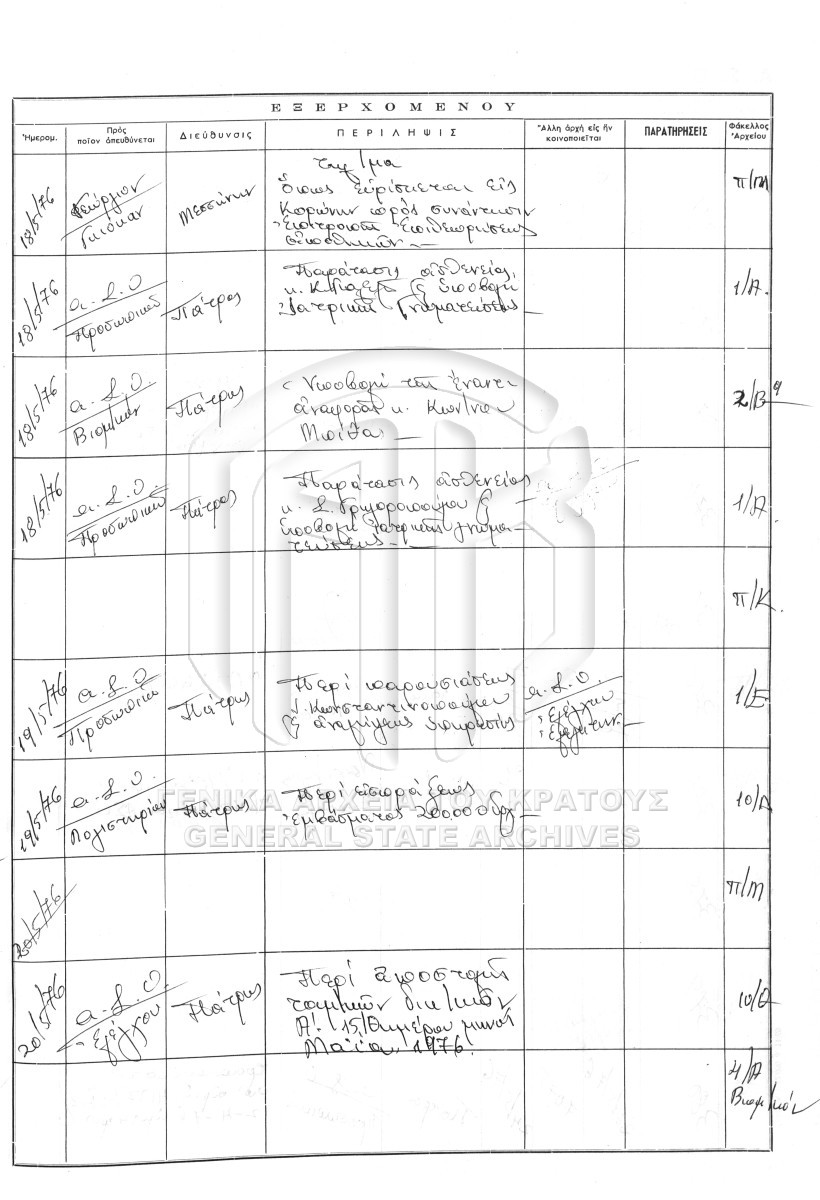 ΕΞΕΡΧΟΜΕΝΟΥ
Ἡμερομ.
Πρὸς
ποῖον ἀπευθύνεται
Διεύθυνσις
ΠΕΡΙΛΗΨΙΣ
Ἄλλη ἀρχὴ εἰς ἣν
κοινοποιεῖται
ΠΑΡΑΤΗΡΗΣΕΙΣ
Φάκελλος
Ἀρχείου
18/5/76
Γεώργιον
Μεσσήνην
τηλ/μα
Ὅπως εὑρίσκεται εἰς
Κορώνην πρὸς συνάντησιν
Ἐπιτροπῆς Ἐπιθεωρήσεως
ἀποθηκῶν
Π/Μ
18/5/76
Α.Σ.Ο
Προσωπικοῦ
Πάτρας
Παράτασις ἀσθενείας
κ. & ὑποβολὴ
Ἰατρικῆς Γνωματεύσεως
1/Α.
18/5/76
Α.Σ.Ο.
Πάτρας
Ὑποβολὴ τῆς ἔναντι
ἀναφορᾶς κ. Κων/νου
2/Β
18/5/76
Α.Σ.Ο.
Προσωπικοῦ
Πάτρας
Παράτασις ἀσθενείας
κ. Σ. Γρηγοροπούλου &
ὑποβολὴ ἰατρικῆς γνωμα-
τεύσεως
1/Α.
Π/Κ.
19/5/76
Α.Σ.Ο
Προσωπικοῦ
Πάτρας
Περὶ παρουσιάσεως
Κωνσταντινοπούλου
& ἀναλήψεως ὑπηρεσίας
Α.Σ.Ο.
Ἐλέγχου
1/Ε
19/5/76
Α.Σ.Ο.
Λογιστηρίου
Πάτρας
Περὶ εἰσπράξεως
Ἐμβάσματος 200.000 δρχ
10/Α
20/5/76
Π/Μ
20/5/76
Α.Σ.Ο.
Ἐλέγχου
Πάτρας
Περὶ ἀποστολῆς
Α! 15/θημέρου μηνὸς
Μαΐου 1976.
10/Θ
4/Α
ΓΕΝΙΚΑ ΑΡΧΕΙΑ ΤΟΥ ΚΡΑΤΟΥΣ
GENERAL STATE ARCHIVES